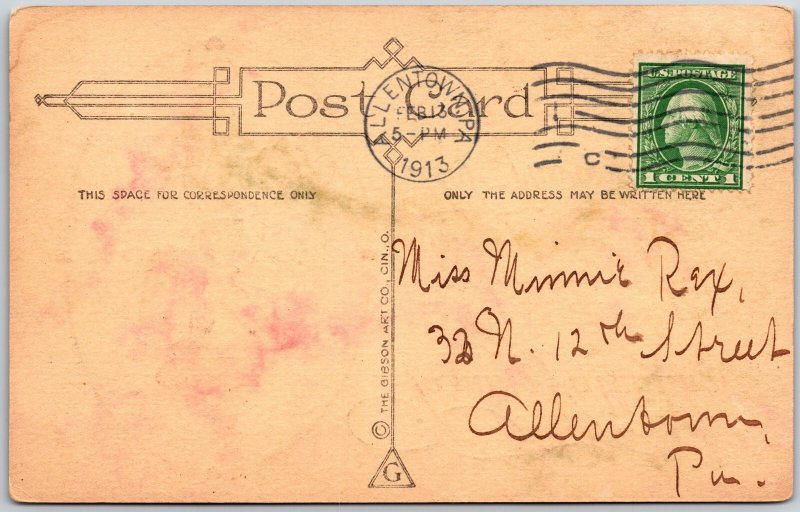 Post Card
ALLENTOWN, PA
FEB 13
5-PM
1913
C
U.S. POSTAGE
1 CENT 1
THIS SPACE FOR CORRESPONDENCE ONLY
ONLY THE ADDRESS MAY BE WRITTEN HERE
© THE GIBSON ART CO., CIN., O.
G
Miss Minnie Rex,
N. 12th Street
Allentown,
Pa.